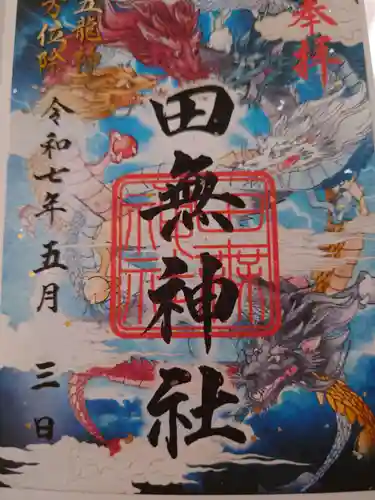 奉拝
田無神社
五龍神
方位除
令和七年五月三日
田無神社